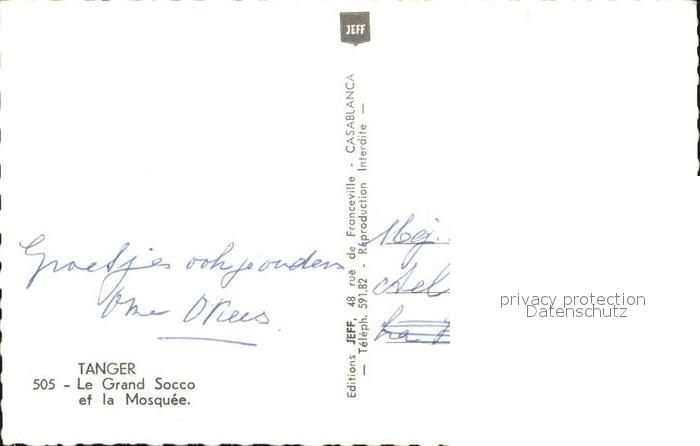 JEFF
Groetjes ook je ouders
Ome
Editions JEFF, 48 rue de Franceville - CASABLANCA
— Téléph. 591.82 - Réproduction Interdite —
Mej.
privacy protection
Datenschutz
TANGER
505 - Le Grand Socco
et la Mosquée.